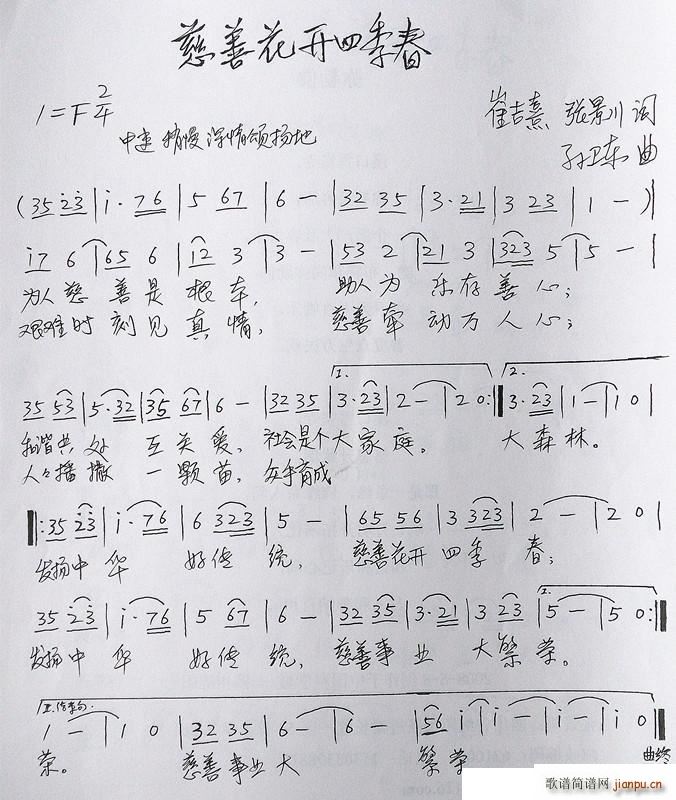 慈善花开四季春
1=F 2/4
中速 稍慢 深情颂扬地
崔吉熹 张景川 词
孙卫东 曲
(35 23 | i· 76 | 5 67 | 6 – | 32 35 | 3· 21 | 3 23 | 1 – )|
i7 6 | 65 6 | i2 3 | 3 – | 53 2 | 21 3 | 323 5 | 5 – |
为人慈善是根本, 助人为乐存善心;
艰难时刻见真情, 慈善牵动万人心;
1. 2.
35 53 | 5· 32 | 35 67 | 6 – | 32 35 | 3· 23 | 2 – | 2 0 :| 3· 23 | 1 – | 1 0 |
和谐共处 互关爱, 社会是个大家庭。 大森林。
人人播撒 一颗苗, 众手育成
|: 35 23 | i· 76 | 6 323 | 5 – | 65 56 | 3 323 | 2 – | 2 0 |
发扬中华 好传统, 慈善花开四季春;
1.
35 23 | i· 76 | 5 67 | 6 – | 32 35 | 3· 21 | 3 23 | 5 – | 5 0 :|
发扬中华 好传统, 慈善事业 大繁荣。
1 – | 1 0 | 32 35 | 6 – | 6 – | 56 i | i – | i – | i 0 |
荣。 慈善事业大 繁荣
曲终
歌谱简谱网
jianpu.cn